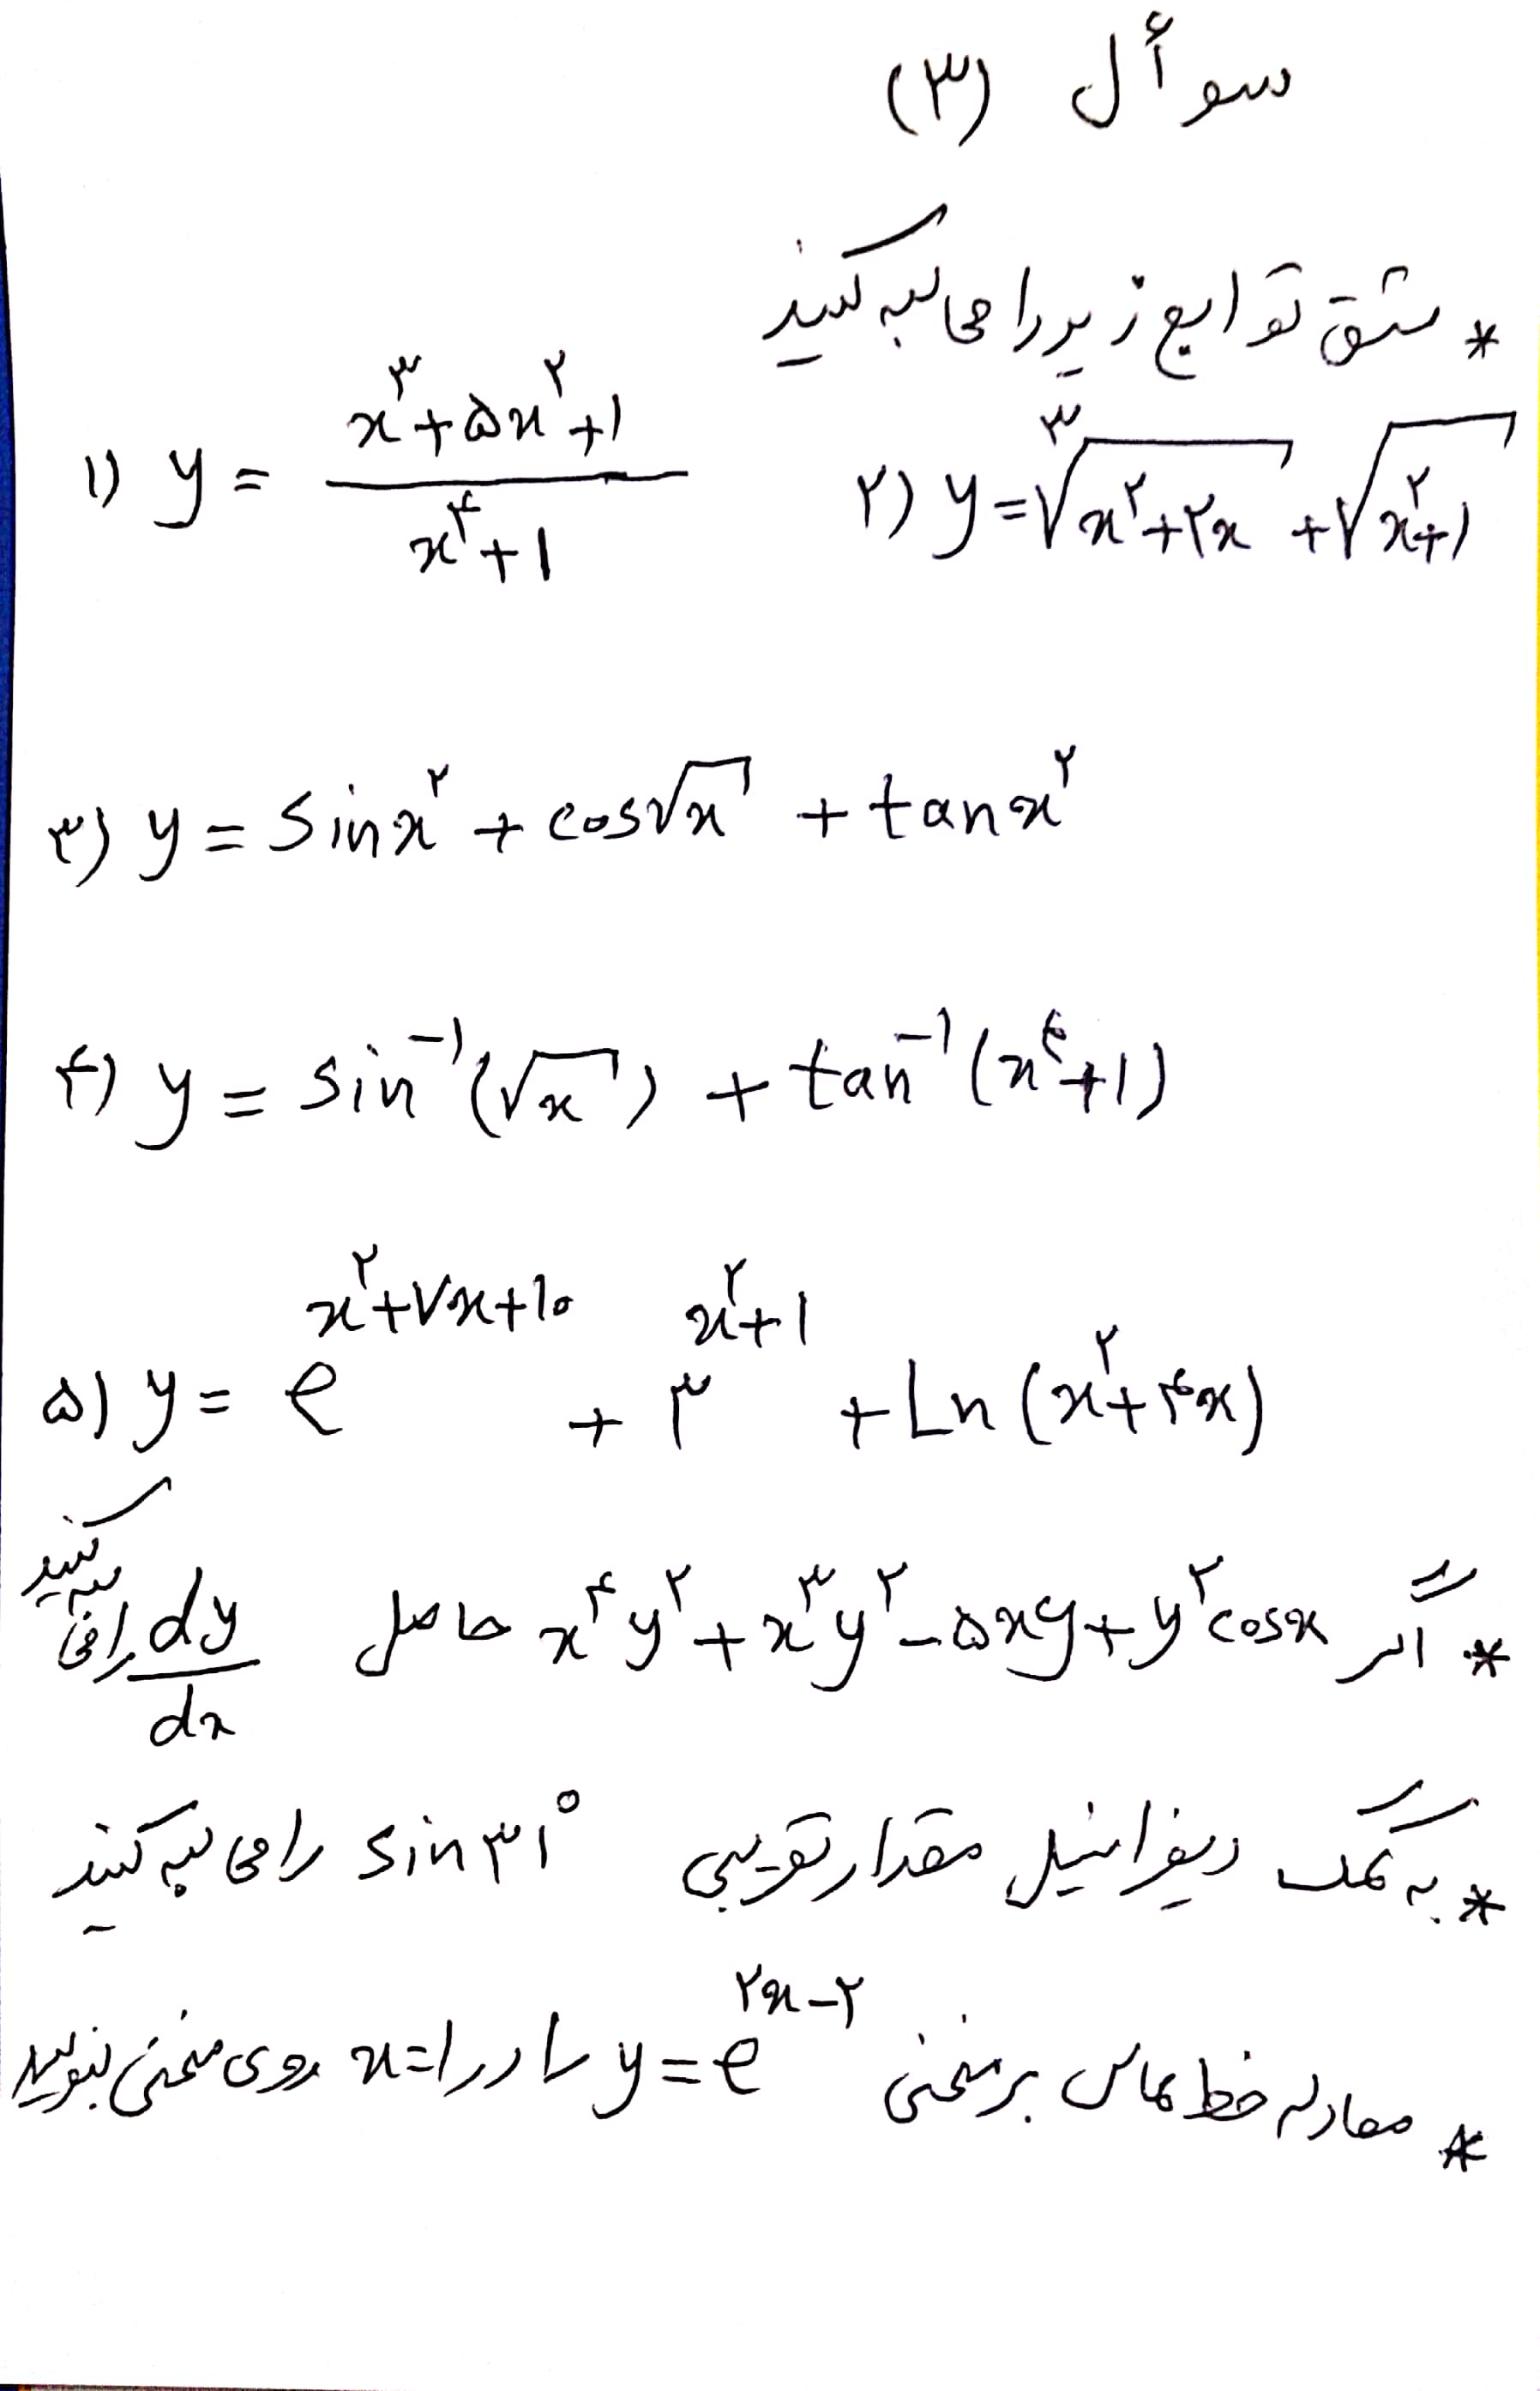 سوأل (۳)
* مشتق توابع زیر را محاسبه کنید
۱) y = (x^۳ + ۵x^۲ + ۱) / (x^۴ + ۱)
۲) y = ∛(x^۲ + ۲x) + √(x^۲ + ۱)
۳) y = sin x^۲ + cos √x + tan x^۲
۴) y = sin^-۱ (√x) + tan^-۱ (x^۴ + ۱)
۵) y = e^(x^۲ + ۷x + ۱۰) + ۳^(x^۲ + ۱) + Ln (x^۲ + ۴x)
* اگر x^۴ y^۲ + x^۳ y^۲ - ۵xy + y^۲ cos x حاصل dy/dx را محاسبه کنید
* به کمک دیفرانسیل مقدار تقریبی sin ۳۱° را محاسبه کنید
* معادله خط مماس بر منحنی y = e^(۲x - ۲) را در x = ۱ روی منحنی بنویسید